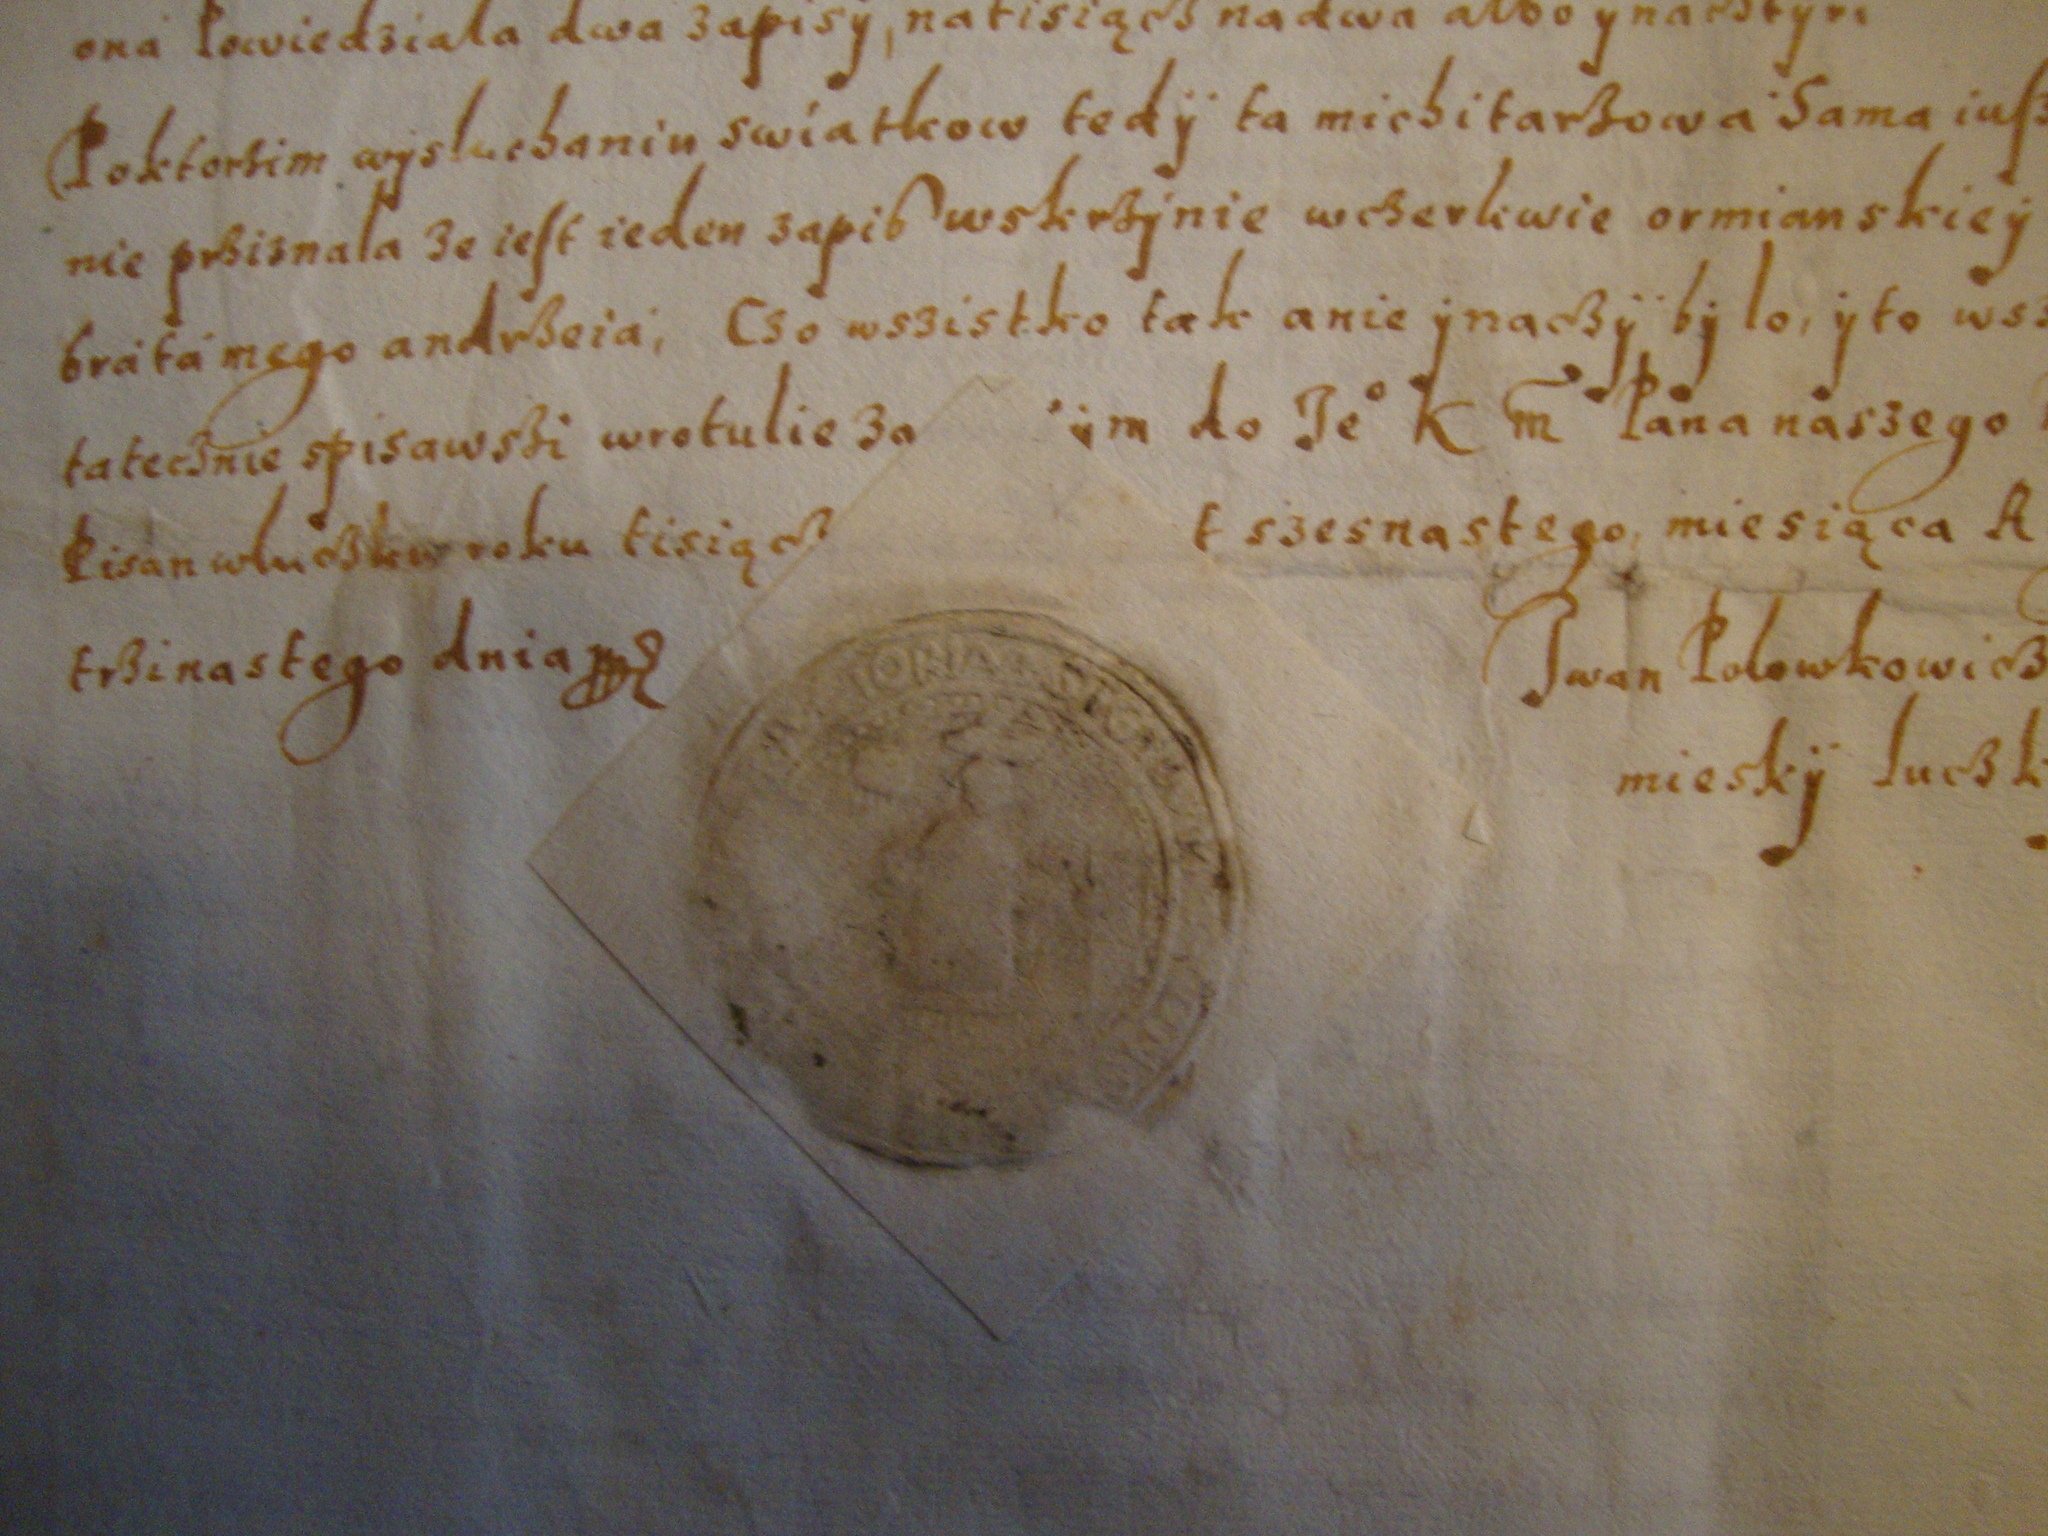 ona Powiedziala dwa zapisy, natisiącz nadwa albo ynacztyri
Poktorzim wysluchaniu swiatkow tedÿ ta michitarzowa sama iusz
nie przisnala ze iest ieden zapis wskrzynie wczerkwie ormianskieÿ
brata mego andrzeia, Czo wszistko tak anie ynaczÿ bylo, yto wsz
tatecznie spisawszi wrotulie za ÿm do Je° K m Pana naszego
Pisan włuczku roku tisiącz t szesnastego, miesiąca
trzinastego dnia
Iwan Polowkowicz
mieskÿ luczk